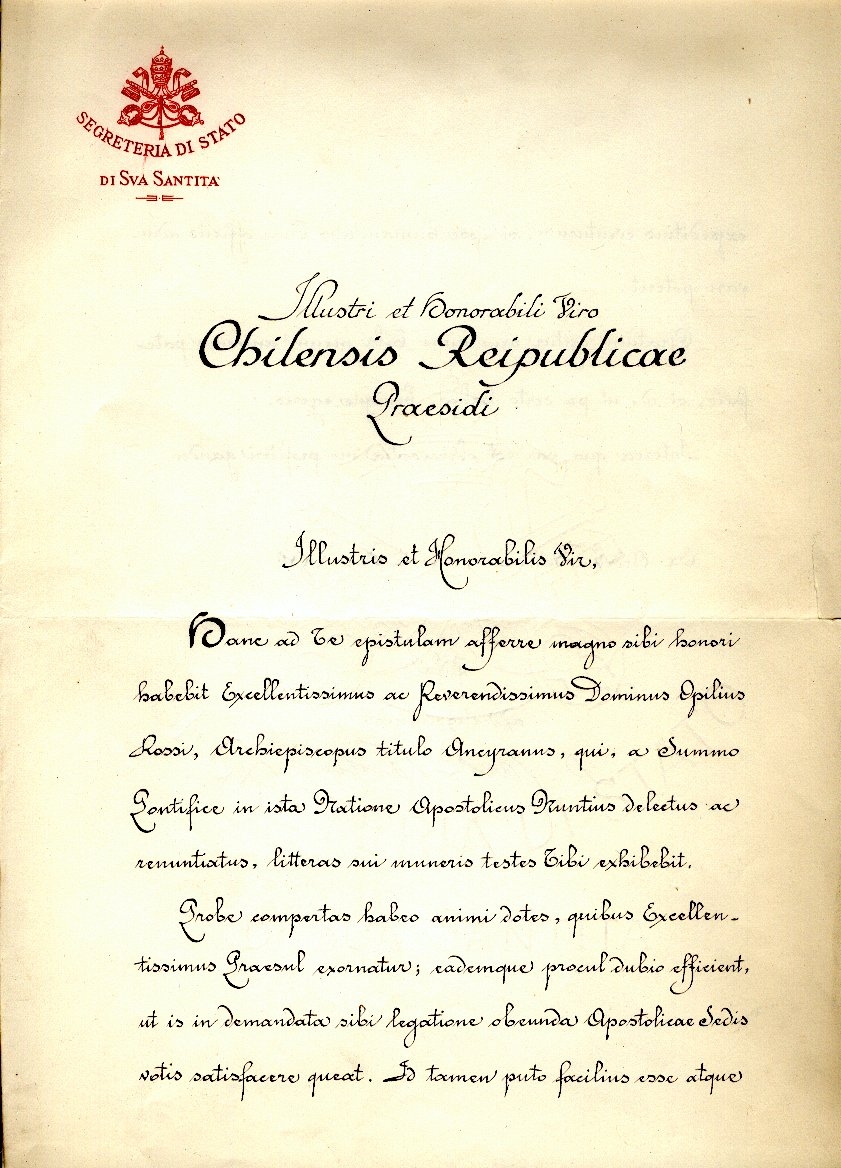 SEGRETERIA DI STATO
DI SVA SANTITA'
Illustri et Honorabili Viro
Chilensis Reipublicae
Praesidi
Illustris et Honorabilis Vir,
Hanc ad Te epistulam afferre magno sibi honori
habebit Excellentissimus ac Reverendissimus Dominus Opilius
Rossi, Archiepiscopus titulo Ancyranus, qui, a Summo
Pontifice in ista Natione Apostolicus Nuntius delectus ac
renuntiatus, litteras sui muneris testes Tibi exhibebit.
Probe compertas habeo animi dotes, quibus Excellen-
tissimus Praesul exornatur; eademque procul dubio efficient,
ut is in demandata sibi legatione obeunda Apostolicae Sedis
votis satisfacere queat. Id tamen puto facilius esse atque